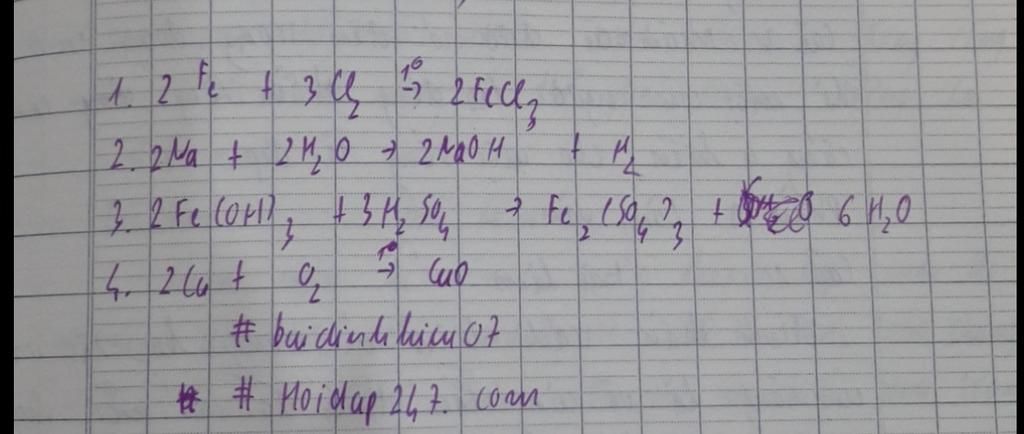 1. 2 Fe + 3 Cl₂ t⁰→ 2FeCl₃
2. 2Na + 2H₂O → 2NaOH + H₂
3. 2Fe(OH)₃ + 3H₂SO₄ → Fe₂(SO₄)₃ + 6H₂O
4. 2Cu + O₂ t⁰→ CuO
# buidinhhieu07
# Hoidap247.com